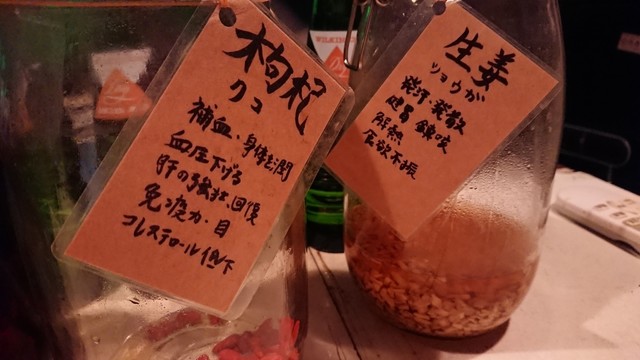 枸杞
クコ
補血・身体を潤
血圧下げる
肝の強壮、回復
免疫力・目
コレステロール低下
生姜
ショウガ
発汗・発散
健胃 鎮咳
解熱
食欲不振